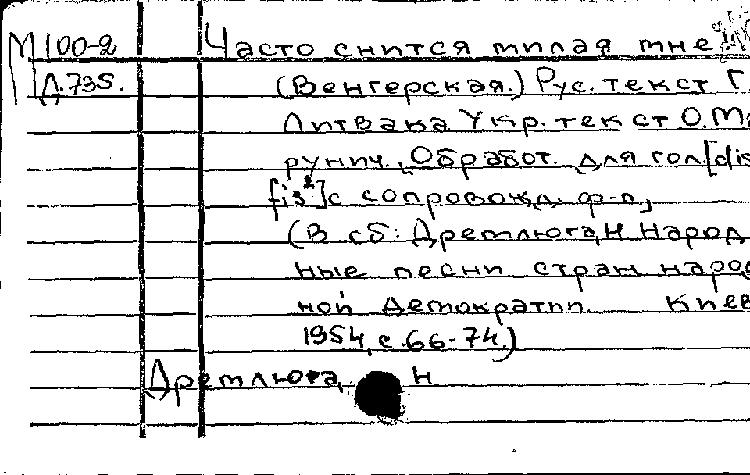 М100-2 Часто снится милая мне
Д.735. (Венгерская.) Рус. текст Г.
Литвака Укр. текст О. Ма
рунич. Обработ. для гол[dis
fis²]с сопровожд. ф-п,
(В сб: Дремлюга, Н. Народ
ные песни стран народ
ной демократии. Киев
1954, с. 66-74.)
Дремлюга, Н